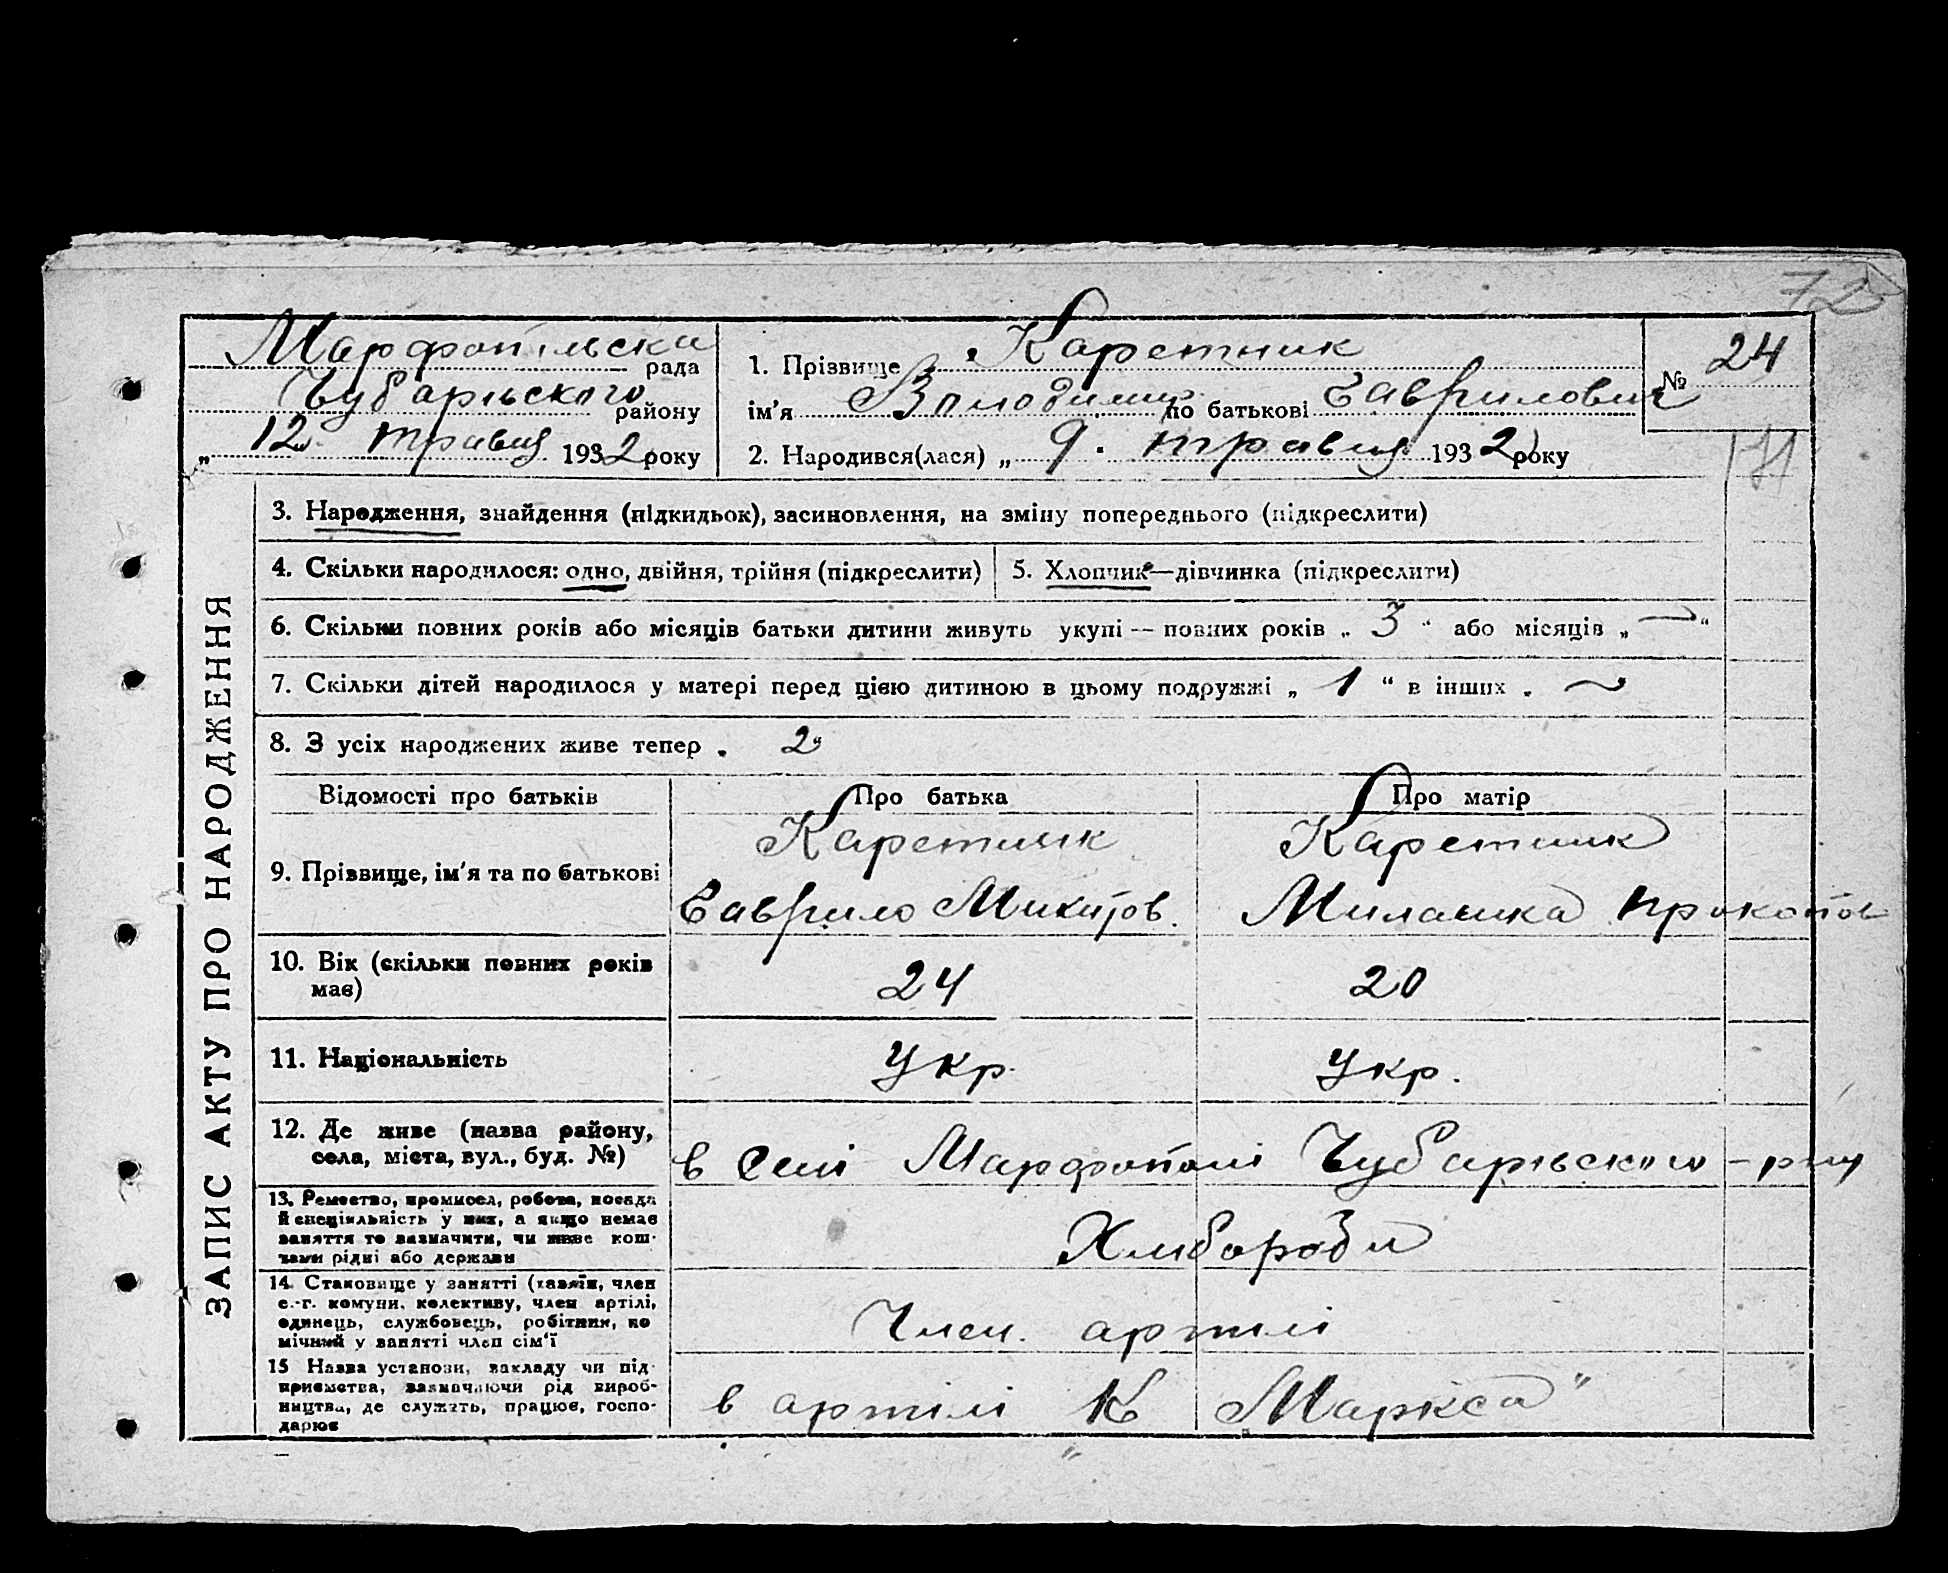 72
Марфопільська рада
Чубарьського району
„12" травня 1932 року
1. Прізвище Каретник
ім'я Володимир по батькові Гаврилович
2. Народився(лася) „ 9. травня 1932 року
№ 24
ЗАПИС АКТУ ПРО НАРОДЖЕННЯ
3. Народження, знайдення (підкидьок), засиновлення, на зміну попереднього (підкреслити)
4. Скільки народилося: одно, двійня, трійня (підкреслити)
5. Хлопчик—дівчинка (підкреслити)
6. Скільки повних років або місяців батьки дитини живуть укупі — повних років „ 3 " або місяців „ — "
7. Скільки дітей народилося у матері перед цією дитиною в цьому подружжі „ 1 " в інших „ —
8. З усіх народжених живе тепер „ 2"
Відомості про батьків
Про батька
Про матір
9. Прізвище, ім'я та по батькові
Каретник
Гаврило Микитов.
Каретник
Милашка Прокопов
10. Вік (скільки повних років
має)
24
20
11. Національність
Укр.
Укр.
12. Де живе (назва району,
села, міста, вул., буд. №)
в селі Марфополі Чубарьского р-ну
13. Ремество, промисел, робота, посада
й спеціяльність у них, а якщо немає
заняття то визначити, чи живе кош-
тами рідні або держави
Хлібороби
14. Становище у занятті (хазяїн, член
с.-г. комуни, колективу, член артілі,
одинець, службовець, робітник, по
мічний у занятті член сім'ї
Член. артілі
15 Назва установи, закладу чи під-
приємства, зазначаючи рід вироб-
ництва, де служить, працює, госпо-
дарює
в артілі К Маркса"